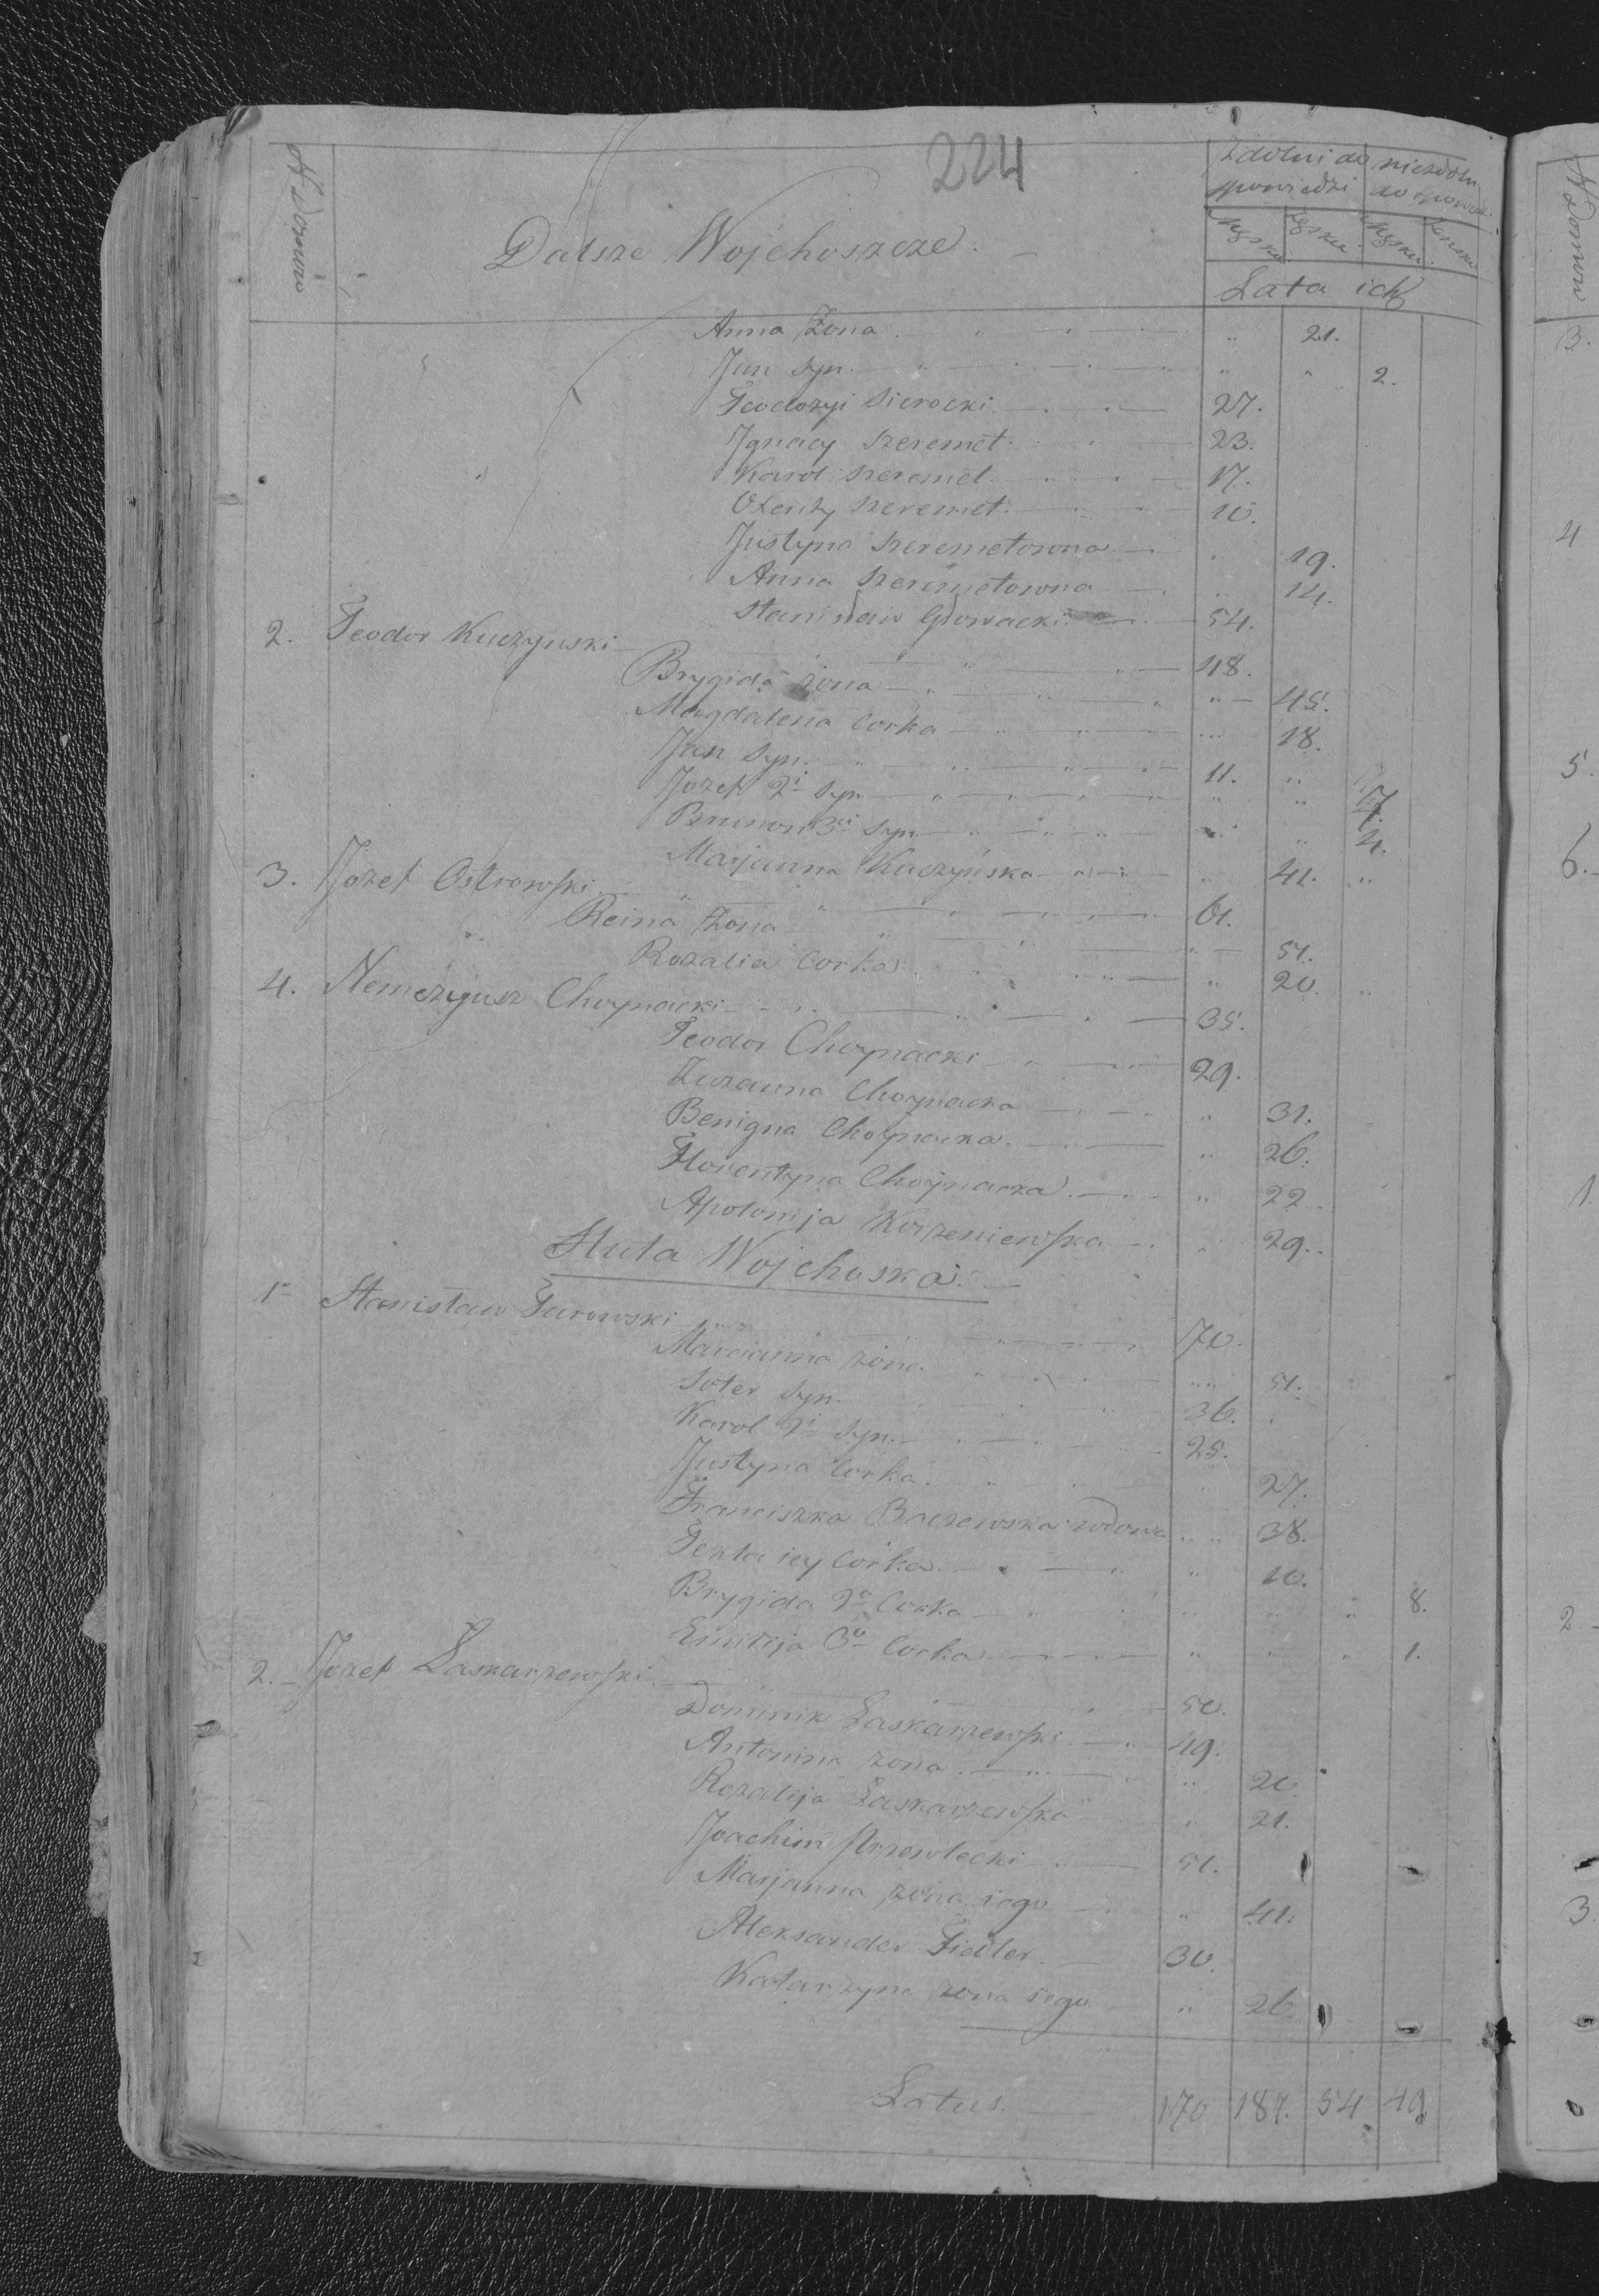 224
N Domow
Zdolni do spowiedzi
niezdolni do spowie
Męska Żęska Męska Żenska
Dalsze Wojchoszcze.
Lata ich
Anna Żona 21.
Jan Syn 2.
Teodozyi Sierocki 27.
Ignacy Szeremet 23.
Karol Szeremet 17.
Szeremet 10.
Justyna Szeremetowna 19.
Anna Szeremetowna 14.
Stanisław Głowacki 54.
2. Teodor Kuczynski 48.
Brygida żona 45.
Magdalena Corka 18.
Jan Syn 11.
Jozef 2i Syn 7.
Brunon 3ci Syn 4.
Marjanna Kuczyńska 41.
3. Jozef Ostrowski 61.
Reina Żona 51.
Rozalia Corka 20.
4. Nemezyusz Choynacki 35.
Teodor Choynacki 29.
Zuzanna Choynacka 31.
Benigna Choynacka 26.
Florentyna Choynacka 22.
Apolonija Korzeniewska 29.
Huta Wojchoska
1 Stanisław Turowski 70.
Marcianna żona 51.
Soter Syn. 36.
Karol 2i Syn. 25.
Justyna Corka 27.
Franciszka Baczewska wdowa 38.
Tekla iey Corka 10.
Brygida 2a Corka 8.
Emilija 3a Corka 1.
2. Jozef Łaskarzewski 50.
Dominik Łaskarzewski 49.
Antonina żona 20.
Rozalija Łaskarzewska 21.
Joachim 51.
Marjanna żona iego 41.
Aleksander Fidler 30.
Katarzyna żona iego 26.
Latus. 170 187. 54 49
N Domow
3.
4
5.
6.
1.
2.
3